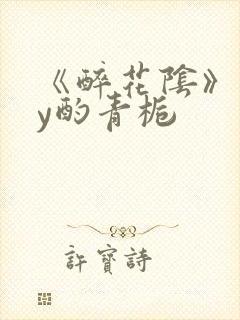 《醉花陰》
y酌青栀
許寶詩